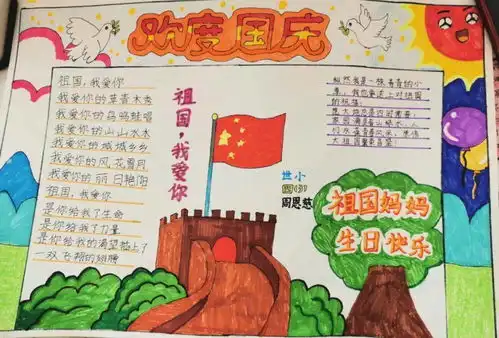 欢度国庆
祖国，我爱你
我爱你的草青木秀
我爱你的鸟鸣蛙唱
我爱你的山山水水
我爱你的城城乡乡
我爱你的风花雪月
我爱你的丽日艳阳
祖国，我爱你
是你给我了生命
是你给我了力量
是你给我的渴望插上了
一双飞翔的翅膀
祖国，我爱你
纵然我是一棵青青的小
草，我也要述上对祖国
的祝福：
世小
四(3)
周恩慈
祖国妈妈
生日快乐